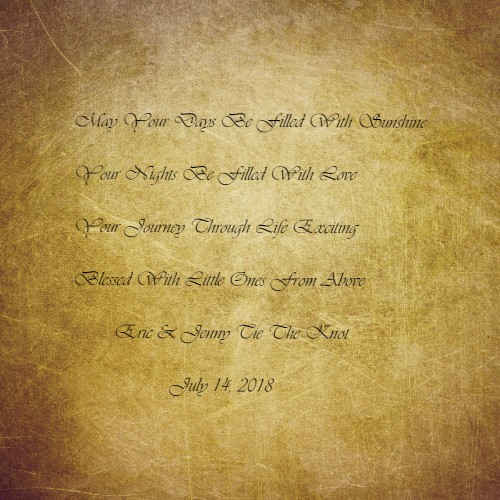 May Your Days Be Filled With Sunshine
Your Nights Be Filled With Love
Your Journey Through Life Exciting
Blessed With Little Ones From Above
Eric & Jenny Tie The Knot
July 14, 2018